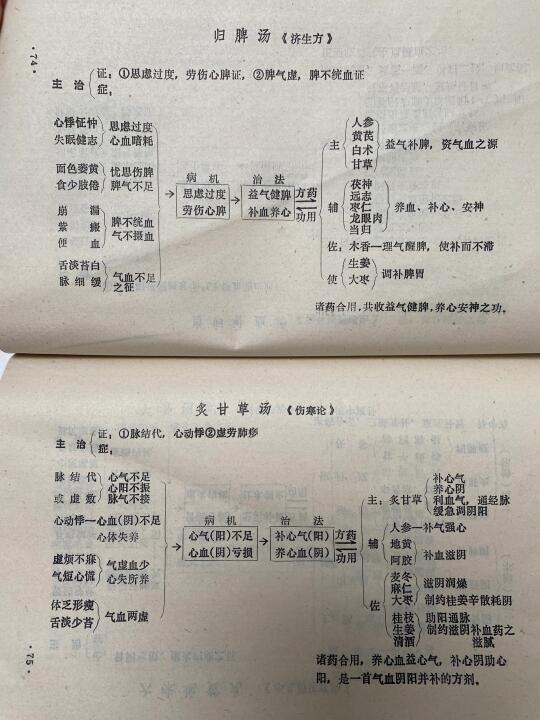 归脾汤《济生方》
·74·
主治
证:①思虑过度,劳伤心脾证,②脾气虚,脾不统血证
症:
心悸怔忡
失眠健忘
思虑过度
心血暗耗
面色萎黄
食少肢倦
忧思伤脾
脾气不足
崩漏
紫癜
便血
脾不统血
气不摄血
舌淡苔白
脉细缓
气血不足
之征
病机
思虑过度
劳伤心脾
治法
益气健脾
补血养心
方药
功用
主
人参
黄芪
白术
甘草
益气补脾,资气血之源
辅
茯神
远志
枣仁
龙眼肉
当归
养血、补心、安神
佐:木香—理气醒脾,使补而不滞
使
生姜
大枣
调补脾胃
诸药合用,共收益气健脾,养心安神之功。
炙甘草汤《伤寒论》
主治
证:①脉结代,心动悸②虚劳肺痿
症:
脉结代
或虚数
心气不足
心阳不振
脉气不接
心动悸—心血(阴)不足
心体失养
虚烦不寐
气短心慌
气虚血少
心失所养
体乏形瘦
舌淡少苔
气血两虚
病机
心气(阳)不足
心血(阴)亏损
治法
补心气(阳)
养心血(阴)
方药
功用
主:炙甘草
补心气
养心阴
利血气,通经脉
缓急调阴阳
辅
人参—补气强心
地黄
阿胶
补血滋阴
佐
麦冬
麻仁
滋阴润燥
大枣
制约桂姜辛散耗阴
桂枝
生姜
清酒
助阳通脉
制约滋阴补血药之
滋腻
诸药合用,养心血益心气,补心阴助心
阳,是一首气血阴阳并补的方剂。
·75·